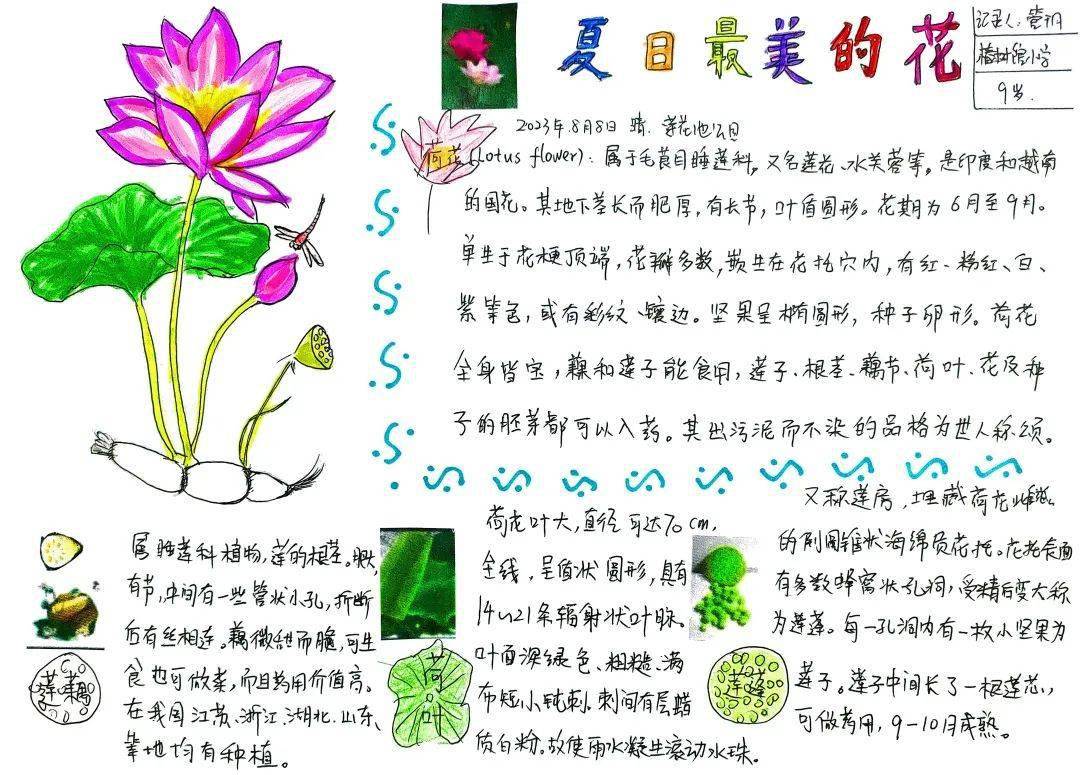 夏日最美的花
记录人:管玥
小学
9岁.
2023年8月8日 晴. 莲花池公园
荷花(Lotus flower): 属于毛茛目睡莲科, 又名莲花、水芙蓉等。是印度和越南
的国花。其地下茎长而肥厚,有长节,叶盾圆形。花期为6月至9月。
单生于花梗顶端,花瓣多数,散生在花托穴内,有红、粉红、白、
紫等色,或有彩纹、镶边。坚果呈椭圆形,种子卵形。荷花
全身皆宝,藕和莲子能食用,莲子、根茎、藕节、荷叶、花及种
子的胚芽都可以入药。其出污泥而不染的品格为世人称颂。
属睡莲科植物,莲的根茎。肥大,
有节,中间有一些管状小孔,折断
后有丝相连。藕微甜而脆,可生
食也可做菜,而且药用价值高。
在我国江苏、浙江、湖北、山东、
等地均有种植。
莲藕
荷花叶大,直径可达70cm,
全缘,呈盾状圆形,具有
14~21条辐射状叶脉。
叶面深绿色、粗糙、满
布短小钝刺.刺间有层蜡
质白粉。故使雨水凝成滚动水珠。
荷叶
又称莲房,埋藏荷花雌蕊
的倒圆锥状海绵质花托。花托表面
有多数蜂窝状孔洞,受精后变大称
为莲蓬。每一孔洞内有一枚小坚果为
莲子。莲子中间长了一根莲芯,
可做药用,9-10月成熟。
莲蓬